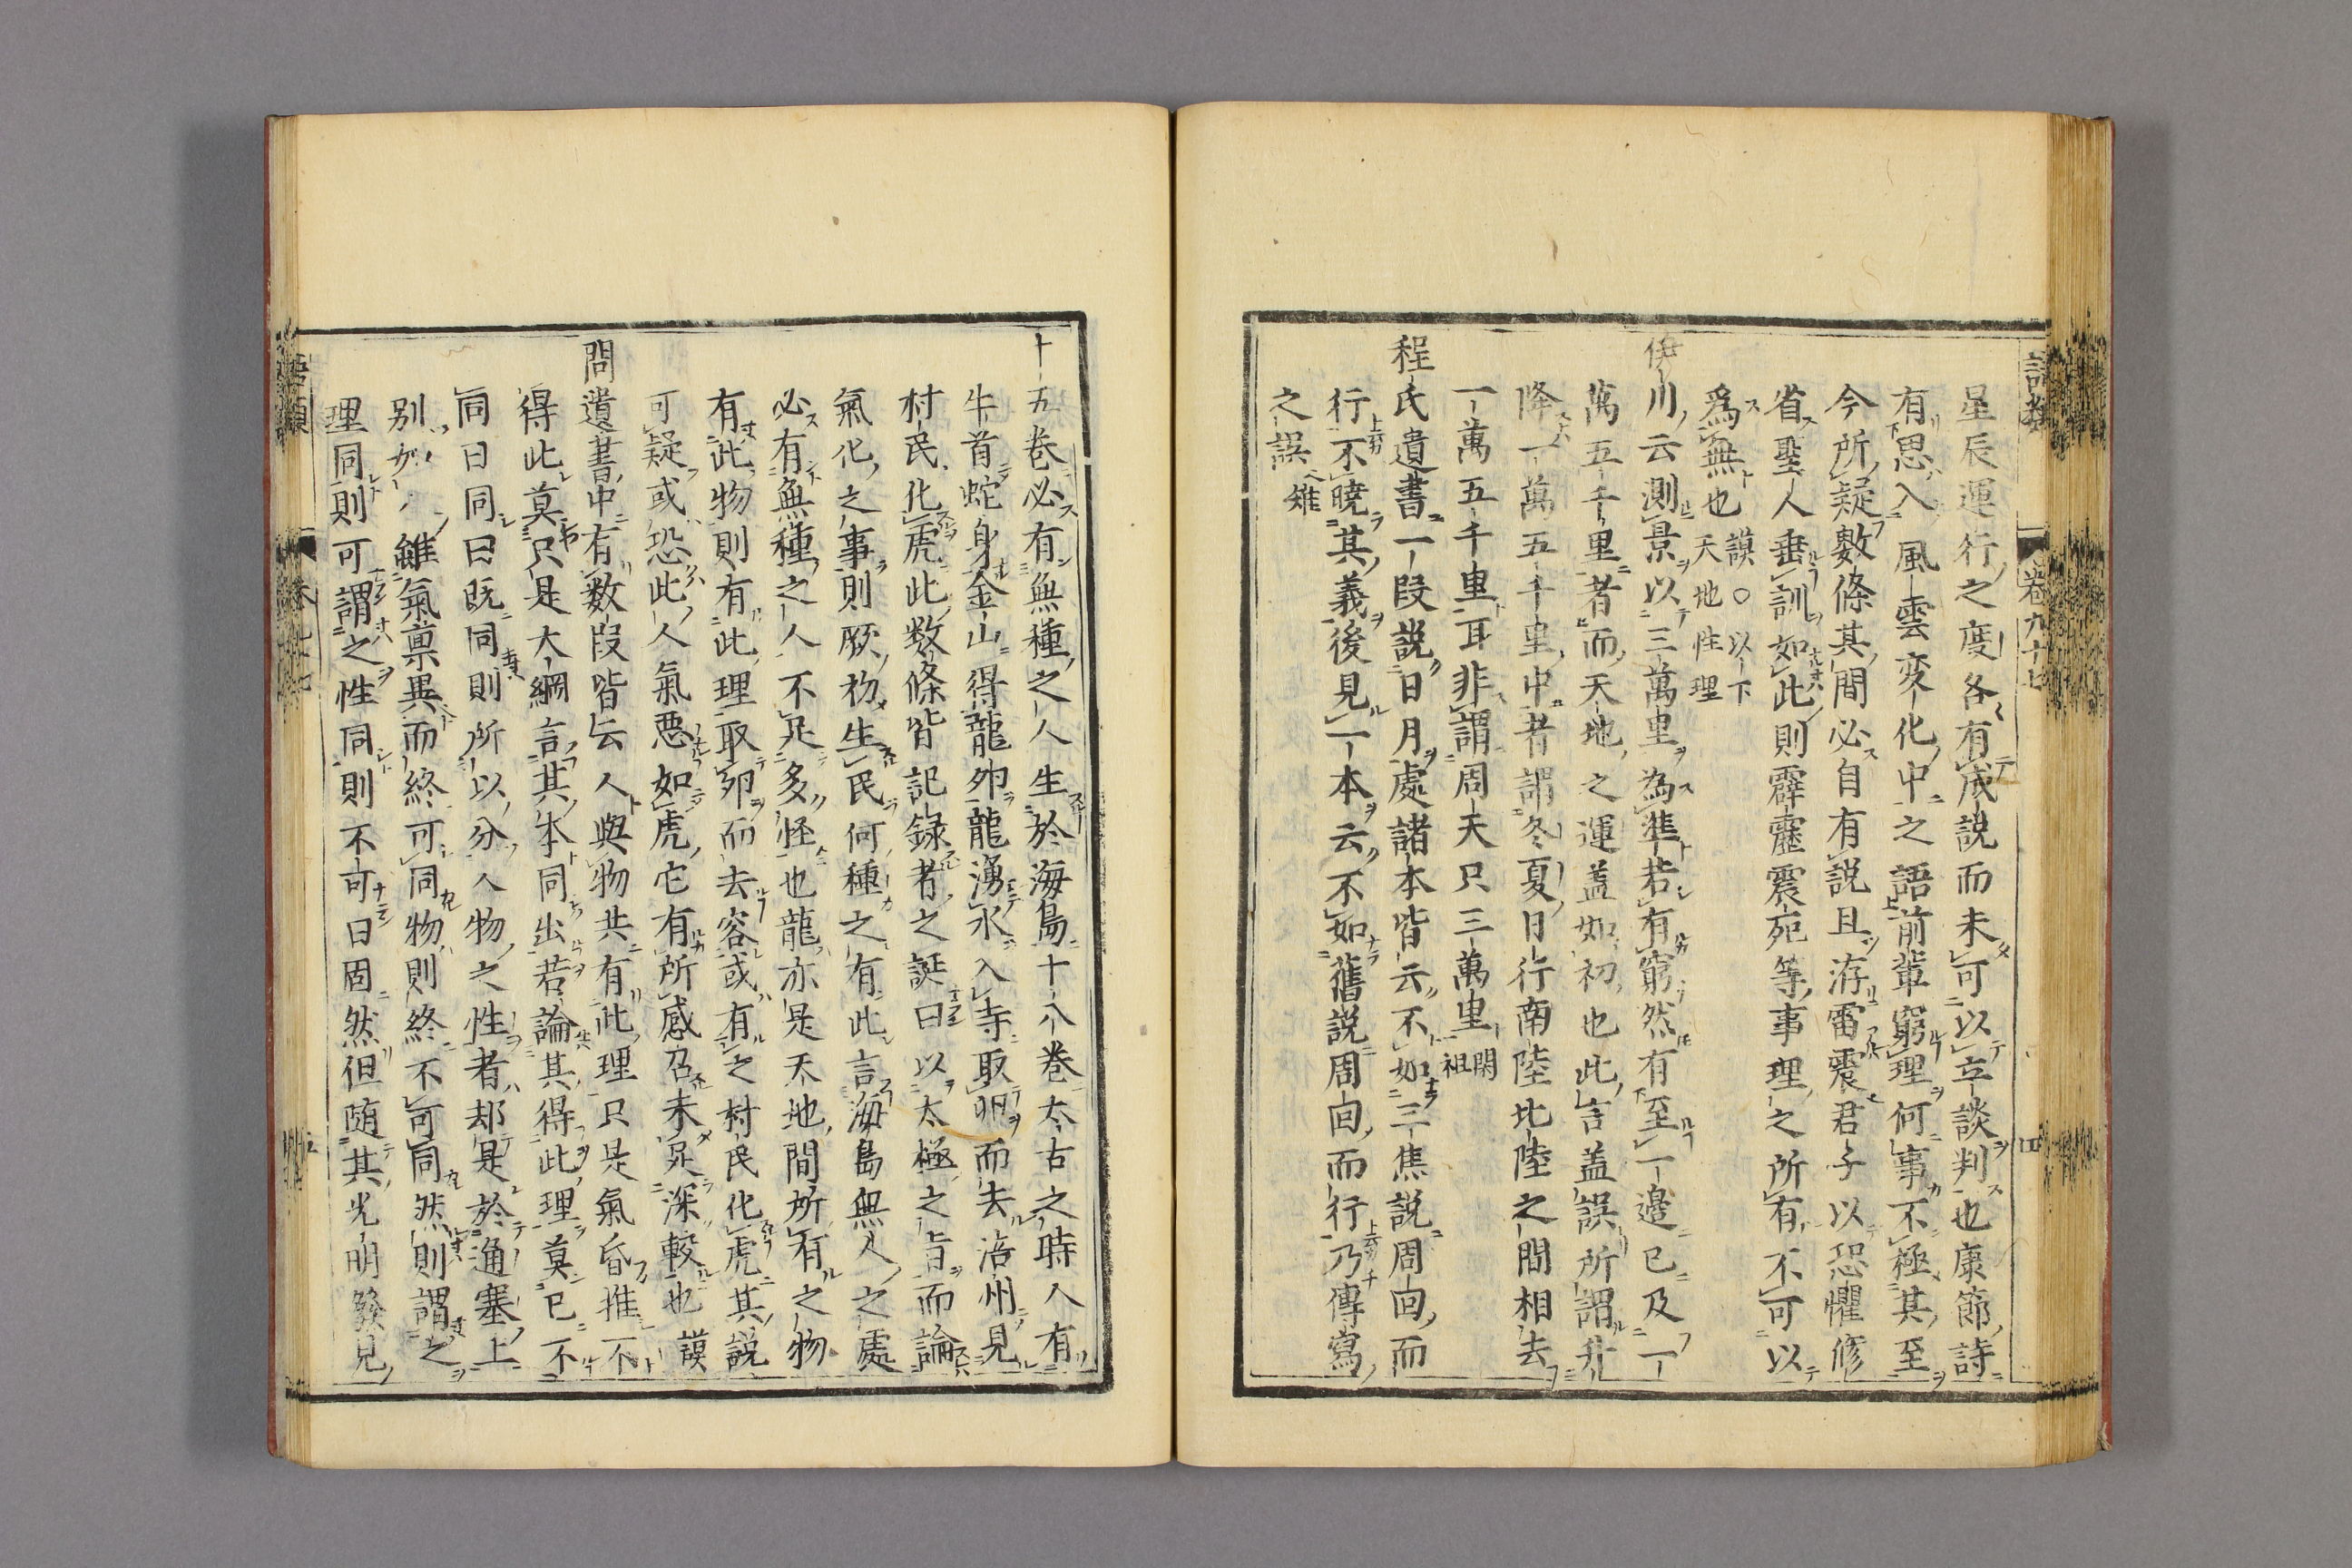 語類 卷九十七 四
星辰運行之度各有成説而未可以立談判也康節詩
有思入風雲変化中之語前輩窮理何事不極其至
今所疑數條其間必自有説且洊雷震君子以恐懼修
省聖人垂訓如此則霹靂震死等事理之所有不可以
爲無也謨○以下天地性理
伊川云測景以三萬里為準若有窮然有至一邊已及一
萬五千里者而天地之運蓋如初也此言蓋誤所謂升
降一萬五千里中者謂冬夏日行南陸北陸之間相去
一萬五千里耳非謂周天只三萬里閎祖
程氏遺書一段説日月處諸本皆云不如三焦説周囬而
行不曉其義後見一本云不如舊説周囬而行乃傳寫
之誤雉
十五巻必有無種之人生於海島十八巻太古之時人有
牛首蛇身金山得龍卵龍湧水入寺取卵而去涪州見
村民化虎此数條皆記錄者之誕曰以太極之旨而論
氣化之事則厥初生民何種之有此言海島無人之處
必有無種之人不足多怪也龍亦是天地間所有之物
有此物則有此理取卵而去容或有之村民化虎其説
可疑或恐此人氣悪如虎它有所感召未足深較也謨
問遺書中有数段皆云人與物共有此理只是氣昏推不
得此莫只是大綱言其本同出若論其得此理莫已不
同曰同曰既同則所以分人物之性者却是於通塞上
別如雖氣禀異而終可同物則終不可同然則謂之
理同則可謂之性同則不可曰固然但随其光明發見
語類